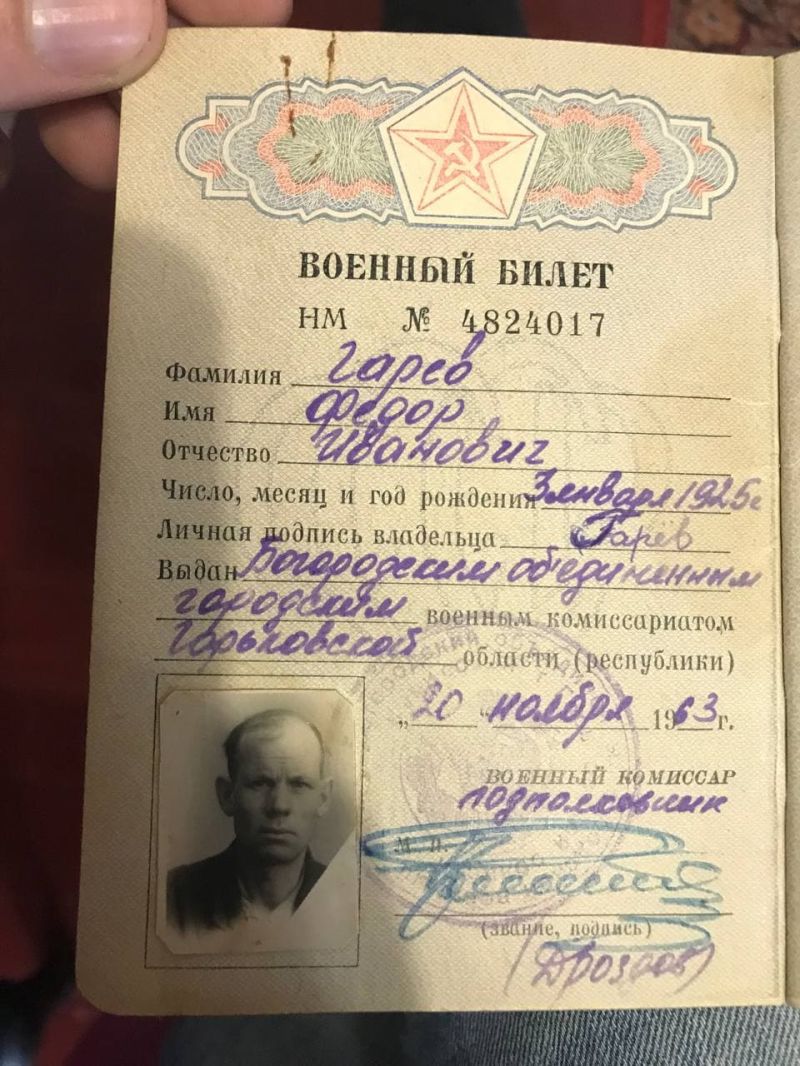 ВОЕННЫЙ БИЛЕТ
НМ № 4824017
Фамилия Гарев
Имя Федор
Отчество Иванович
Число, месяц и год рождения 3 января 1925 г
Личная подпись владельца Гарёв
Выдан Богородским объединенным
городским военным комиссариатом
Горьковской области (республики)
„20" ноября 1963 г.
ВОЕННЫЙ КОМИССАР
подполковник
М. П.
(звание, подпись)
(Дроздов)